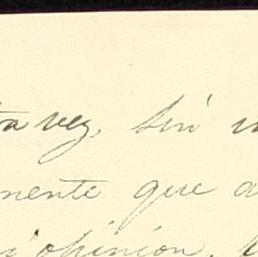 tra vez, sin
mente que a
i opinion.